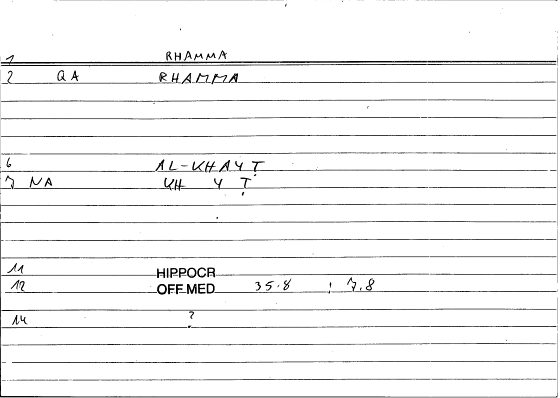 1 RHAMMA
2 QA RHAMMA
6 AL-KHAYṬ
7 NA KH Y Ṭ
11 HIPPOCR
12 OFF MED 35.8 ; 7.8
14 ?